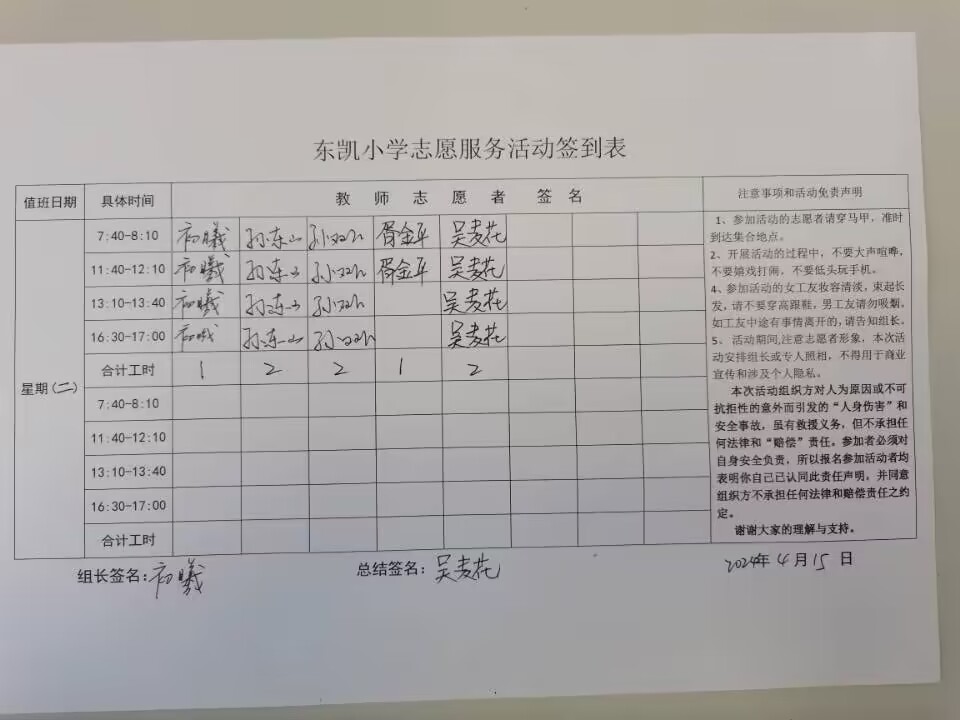 东凯小学志愿服务活动签到表
值班日期 具体时间 教师志愿者签名 注意事项和活动免责声明
星期(二)
7:40-8:10 初曦 孙东山 胥金平 吴麦花
11:40-12:10 初曦 孙东山 胥金平 吴麦花
13:10-13:40 初曦 孙东山 吴麦花
16:30-17:00 初曦 孙东山 吴麦花
合计工时 1 2 2 1 2
7:40-8:10
11:40-12:10
13:10-13:40
16:30-17:00
合计工时
1、参加活动的志愿者请穿马甲，准时
到达集合地点。
2、开展活动的过程中，不要大声喧哗，
不要嬉戏打闹，不要低头玩手机。
4、参加活动的女工友妆容清淡，束起长
发，请不要穿高跟鞋，男工友请勿吸烟。
如工友中途有事情离开的，请告知组长。
5、 活动期间,注意志愿者形象，本次活
动安排组长或专人照相，不得用于商业
宣传和涉及个人隐私。
本次活动组织方对人为原因或不可
抗拒性的意外而引发的“人身伤害”和
安全事故，虽有救援义务，但不承担任
何法律和“赔偿”责任。参加者必须对
自身安全负责，所以报名参加活动者均
表明你自己已认同此责任声明，并同意
组织方不承担任何法律和赔偿责任之约
定。
谢谢大家的理解与支持。
组长签名:初曦 总结签名: 吴麦花 2024年4月15日